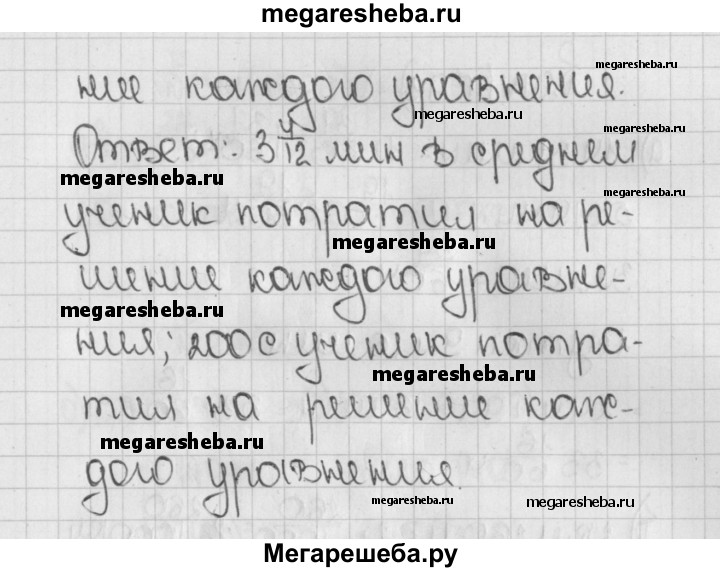 megaresheba.ru
megaresheba.ru
ние каждого уравнения.
megaresheba.ru
Ответ: 3 4/12 мин в среднем
megaresheba.ru
megaresheba.ru
ученик потратил на ре-
megaresheba.ru
шение каждого уравне-
megaresheba.ru
ния; 200 с ученик потра-
megaresheba.ru
тил на решение каж-
megaresheba.ru
дого уравнения.
megaresheba.ru
megaresheba.ru
Мегарешеба.ру